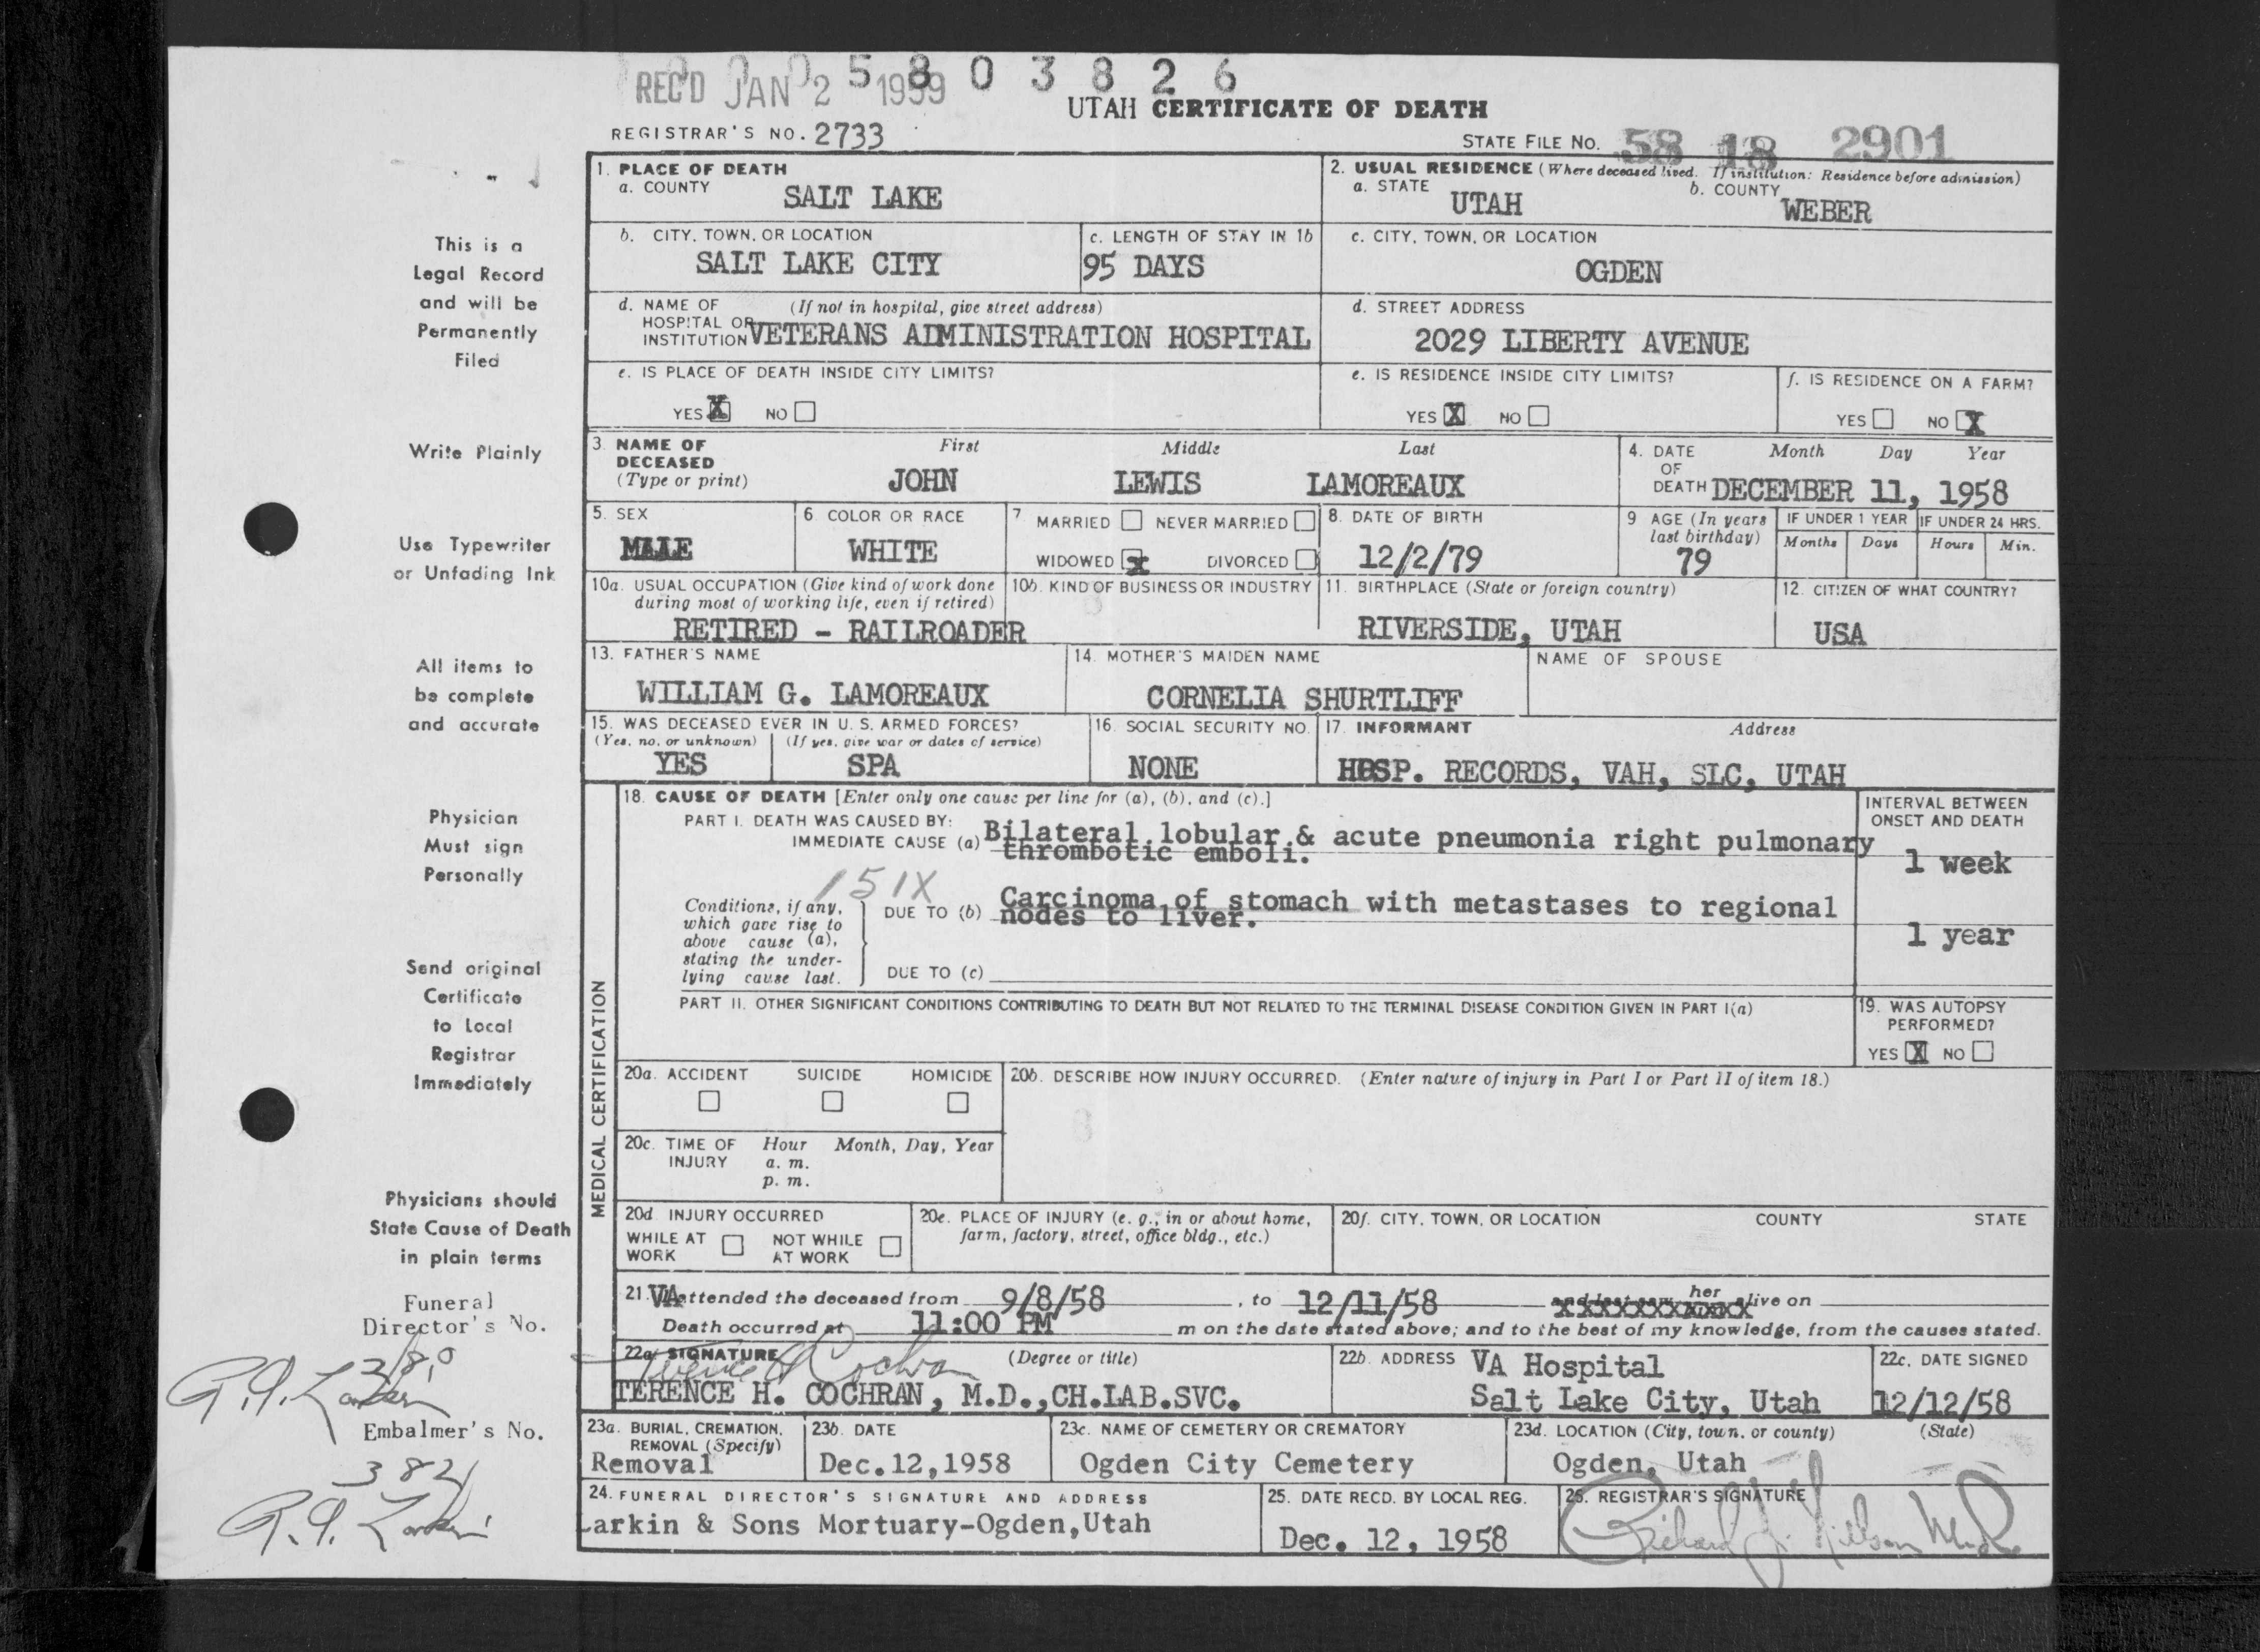 0 0 5 8 0 3 8 2 6
REC'D JAN 2 1959
UTAH CERTIFICATE OF DEATH
REGISTRAR'S NO. 2733
STATE FILE NO. 58 18 2901
1. PLACE OF DEATH
a. COUNTY
SALT LAKE
2. USUAL RESIDENCE (Where deceased lived. If institution: Residence before admission)
a. STATE
UTAH
b. COUNTY
WEBER
b. CITY, TOWN, OR LOCATION
SALT LAKE CITY
c. LENGTH OF STAY IN 1b
95 DAYS
c. CITY, TOWN, OR LOCATION
OGDEN
d. NAME OF (If not in hospital, give street address)
HOSPITAL OR
INSTITUTION VETERANS ADMINISTRATION HOSPITAL
d. STREET ADDRESS
2029 LIBERTY AVENUE
e. IS PLACE OF DEATH INSIDE CITY LIMITS?
YES X NO
e. IS RESIDENCE INSIDE CITY LIMITS?
YES X NO
f. IS RESIDENCE ON A FARM?
YES NO X
3. NAME OF DECEASED
(Type or print)
First Middle Last
JOHN LEWIS LAMOREAUX
4. DATE OF DEATH
Month Day Year
DECEMBER 11, 1958
5. SEX
MALE
6. COLOR OR RACE
WHITE
7. MARRIED NEVER MARRIED
WIDOWED X DIVORCED
8. DATE OF BIRTH
12/2/79
9 AGE (In years
last birthday)
79
IF UNDER 1 YEAR
Months Days
IF UNDER 24 HRS.
Hours Min.
10a. USUAL OCCUPATION (Give kind of work done
during most of working life, even if retired)
RETIRED - RAILROADER
10b. KIND OF BUSINESS OR INDUSTRY
11. BIRTHPLACE (State or foreign country)
RIVERSIDE, UTAH
12. CITIZEN OF WHAT COUNTRY?
USA
13. FATHER'S NAME
WILLIAM G. LAMOREAUX
14. MOTHER'S MAIDEN NAME
CORNELIA SHURTLIFF
NAME OF SPOUSE
15. WAS DECEASED EVER IN U. S. ARMED FORCES?
(Yes, no, or unknown) (If yes, give war or dates of service)
YES SPA
16. SOCIAL SECURITY NO.
NONE
17. INFORMANT Address
HOSP. RECORDS, VAH, SLC, UTAH
MEDICAL CERTIFICATION
18. CAUSE OF DEATH [Enter only one cause per line for (a), (b), and (c).]
PART I. DEATH WAS CAUSED BY:
IMMEDIATE CAUSE (a) Bilateral lobular & acute pneumonia right pulmonary
thrombotic emboli.
INTERVAL BETWEEN
ONSET AND DEATH
1 week
151X
Conditions, if any,
which gave rise to
above cause (a),
stating the under-
lying cause last.
DUE TO (b) Carcinoma of stomach with metastases to regional
nodes to liver.
1 year
DUE TO (c)
PART II. OTHER SIGNIFICANT CONDITIONS CONTRIBUTING TO DEATH BUT NOT RELATED TO THE TERMINAL DISEASE CONDITION GIVEN IN PART I(a)
19. WAS AUTOPSY
PERFORMED?
YES X NO
20a. ACCIDENT SUICIDE HOMICIDE
20b. DESCRIBE HOW INJURY OCCURRED. (Enter nature of injury in Part I or Part II of item 18.)
20c. TIME OF INJURY
Hour Month, Day, Year
a. m.
p. m.
20d. INJURY OCCURRED
WHILE AT WORK NOT WHILE AT WORK
20e. PLACE OF INJURY (e. g., in or about home,
farm, factory, street, office bldg., etc.)
20f. CITY, TOWN, OR LOCATION COUNTY STATE
21. VA attended the deceased from 9/8/58, to 12/11/58 and last saw her alive on
Death occurred at 11:00 PM m on the date stated above; and to the best of my knowledge, from the causes stated.
22a. SIGNATURE (Degree or title)
Terence H Cochran
TERENCE H. COCHRAN, M.D.,CH.LAB.SVC.
22b. ADDRESS VA Hospital
Salt Lake City, Utah
22c. DATE SIGNED
12/12/58
23a. BURIAL, CREMATION,
REMOVAL (Specify)
Removal
23b. DATE
Dec.12,1958
23c. NAME OF CEMETERY OR CREMATORY
Ogden City Cemetery
23d. LOCATION (City, town, or county) (State)
Ogden, Utah
24. FUNERAL DIRECTOR'S SIGNATURE AND ADDRESS
Larkin & Sons Mortuary-Ogden,Utah
25. DATE RECD. BY LOCAL REG.
Dec. 12, 1958
26. REGISTRAR'S SIGNATURE
Richard J. Nielson
This is a
Legal Record
and will be
Permanently
Filed
Write Plainly
Use Typewriter
or Unfading Ink
All items to
be complete
and accurate
Physician
Must sign
Personally
Send original
Certificate
to Local
Registrar
Immediately
Physicians should
State Cause of Death
in plain terms
Funeral
Director's No.
Larkin
Embalmer's No.
382
Larkin